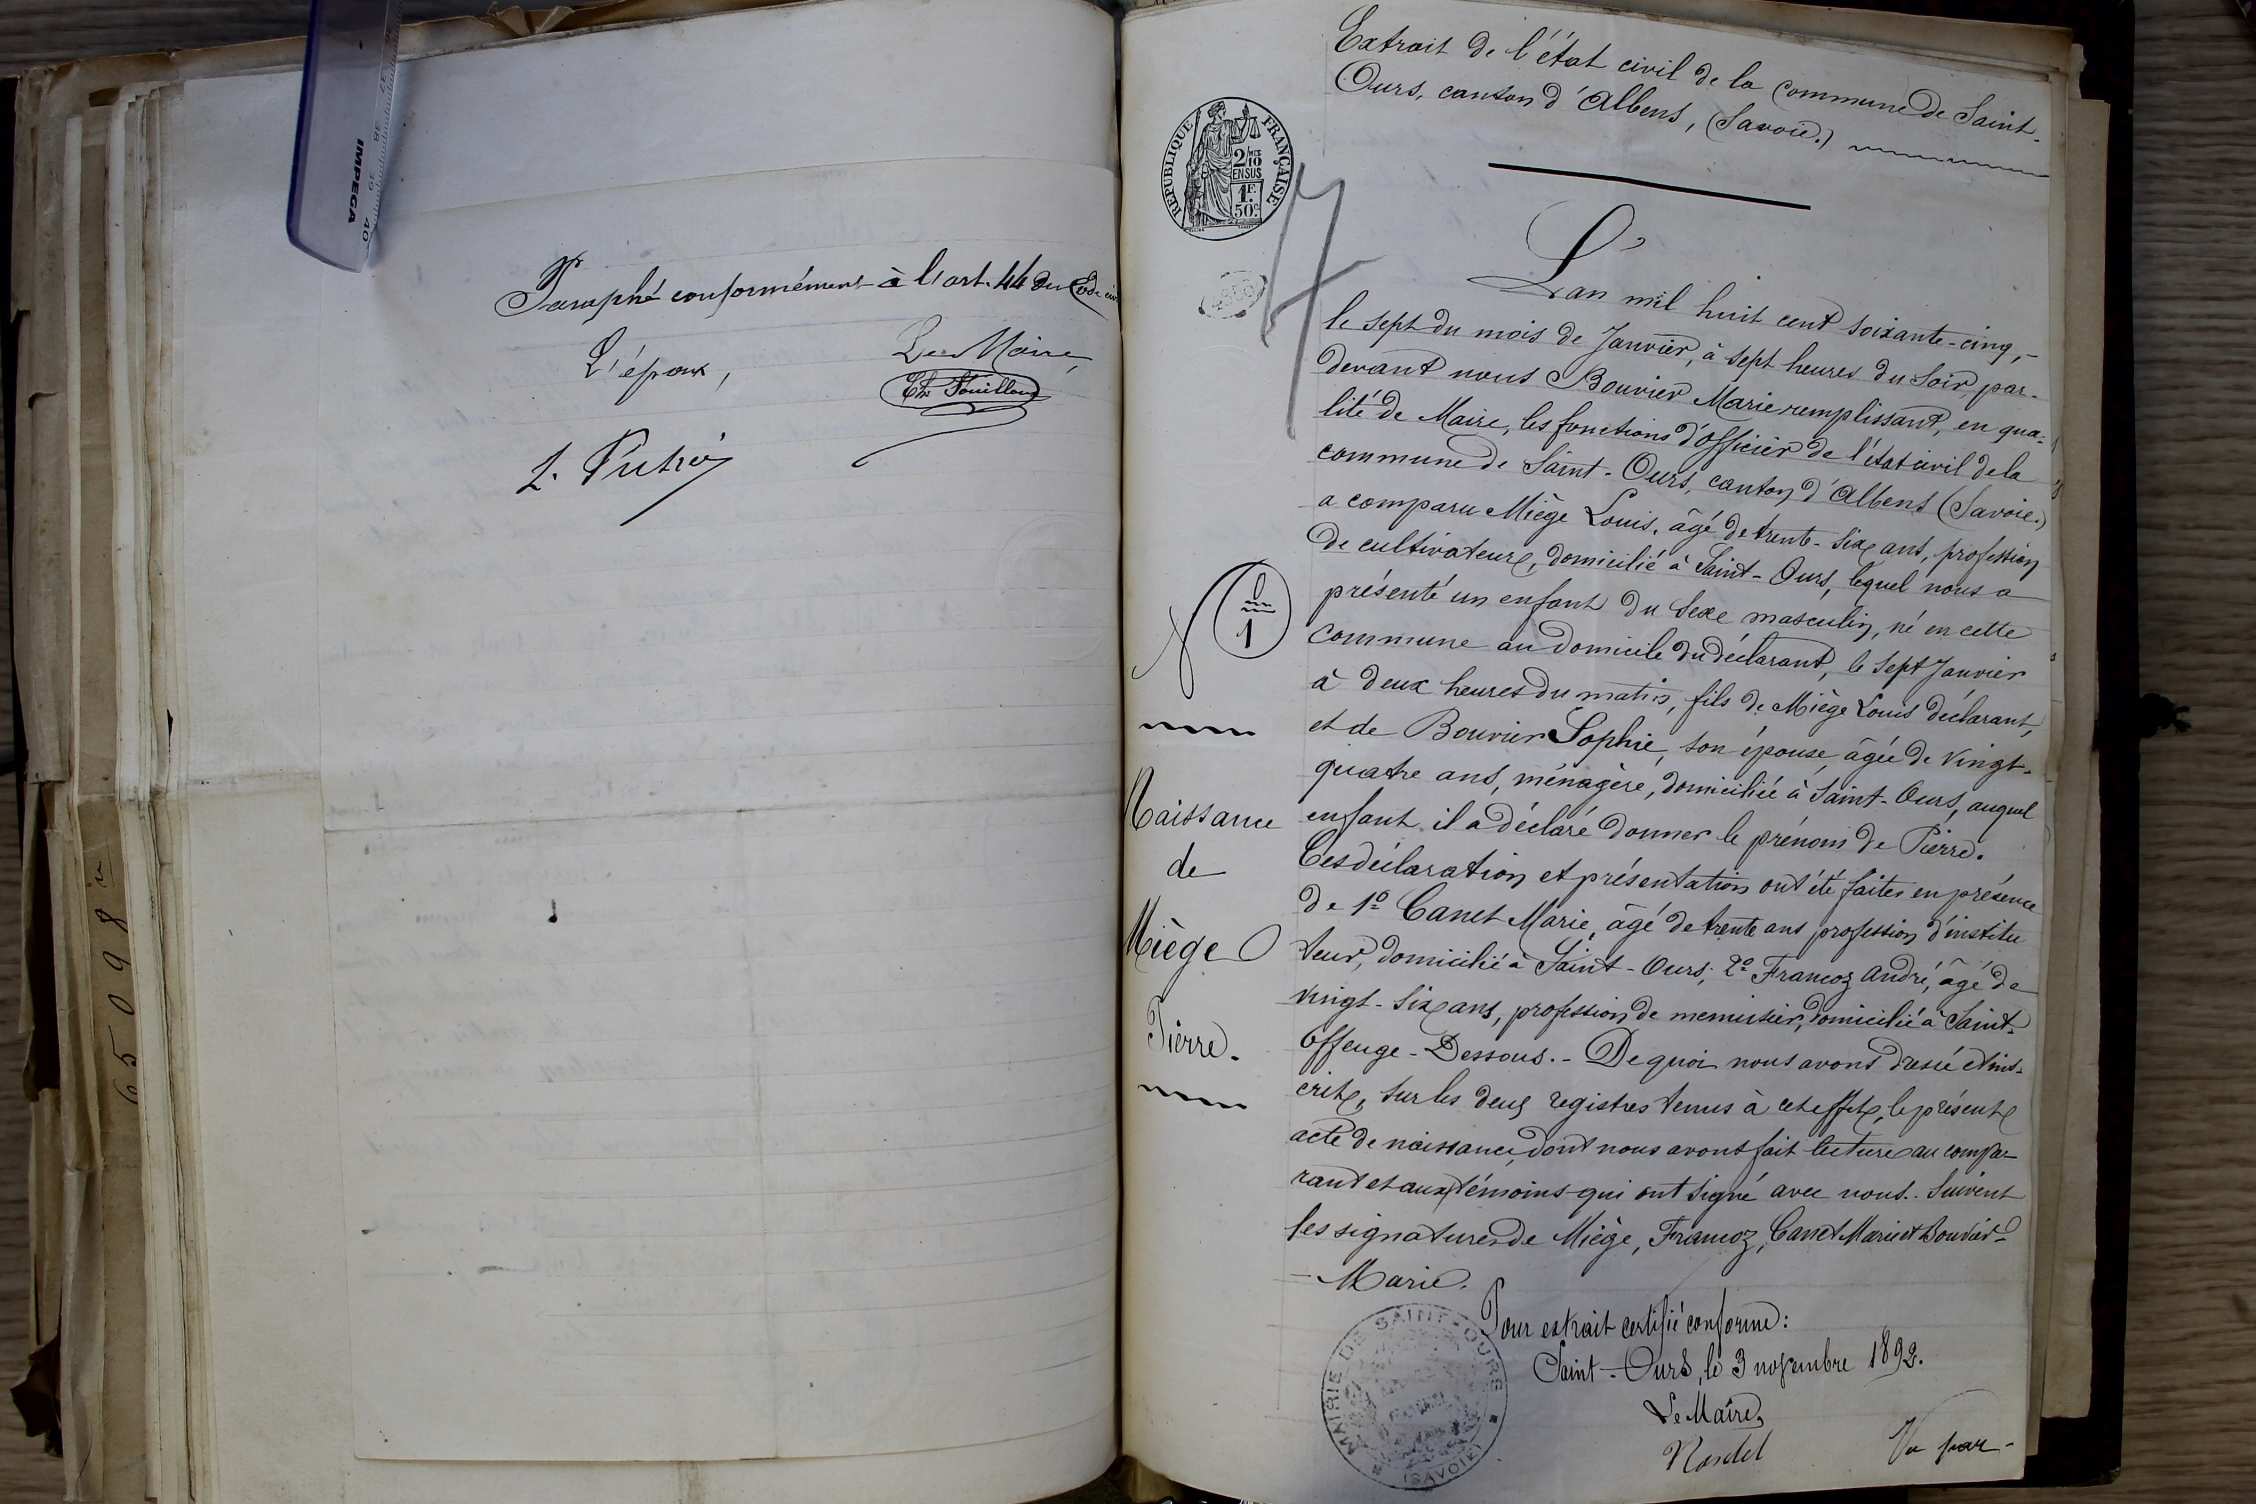 IMPEGA
37
38
39
40
Paraphé conformément à l'art. 44 du Code civ
L'époux,
Le Maire,
65098
Extrait de l'état civil de la commune de Saint-
Ours, canton d'Albens, (Savoie.)
RÉPUBLIQUE FRANÇAISE
2/10 MES
EN SUS
1F.
50c.
L'an mil huit cent soixante-cinq,-
le sept du mois de Janvier, à sept heures du soir, par-
devant nous Bouvier Marie remplissant, en qua-
lité de Maire, les fonctions d'officier de l'état civil de la
commune de Saint-Ours, canton d'Albens (Savoie.)
a comparu Miège Louis, âgé de trente-six ans, profession
de cultivateur, domicilié à Saint-Ours, lequel nous a
présenté un enfant du sexe masculin, né en cette
commune au domicile du déclarant, le sept Janvier
à deux heures du matin, fils de Miège Louis déclarant,
et de Bouvier Sophie, son épouse, âgée de vingt-
quatre ans, ménagère, domiciliée à Saint-Ours, auquel
enfant il a déclaré donner le prénom de Pierre.
Ces déclaration et présentation ont été faites en présence
de 1º Canet Marie, âgé de trente ans profession d'institu
teur, domicilié à Saint-Ours; 2º Francoz André, âgé de
vingt-six ans, profession de menuisier, domicilié à Saint-
Offenge-Dessous.- De quoi nous avons dressé et ins-
crit, sur les deux registres tenus à cet effet, le présent
acte de naissance, dont nous avons fait lecture au compa-
rant et aux témoins qui ont signé avec nous. Suivent
les signatures de Miège, Francoz, Canet Marie et Bouvier-
- Marie.
N 1
Naissance
de
Miège
Pierre.
Pour extrait certifié conforme:
Saint-Ours, le 3 novembre 1892.
Le Maire,
MAIRIE DE SAINT-OURS
(SAVOIE)
Vu par-